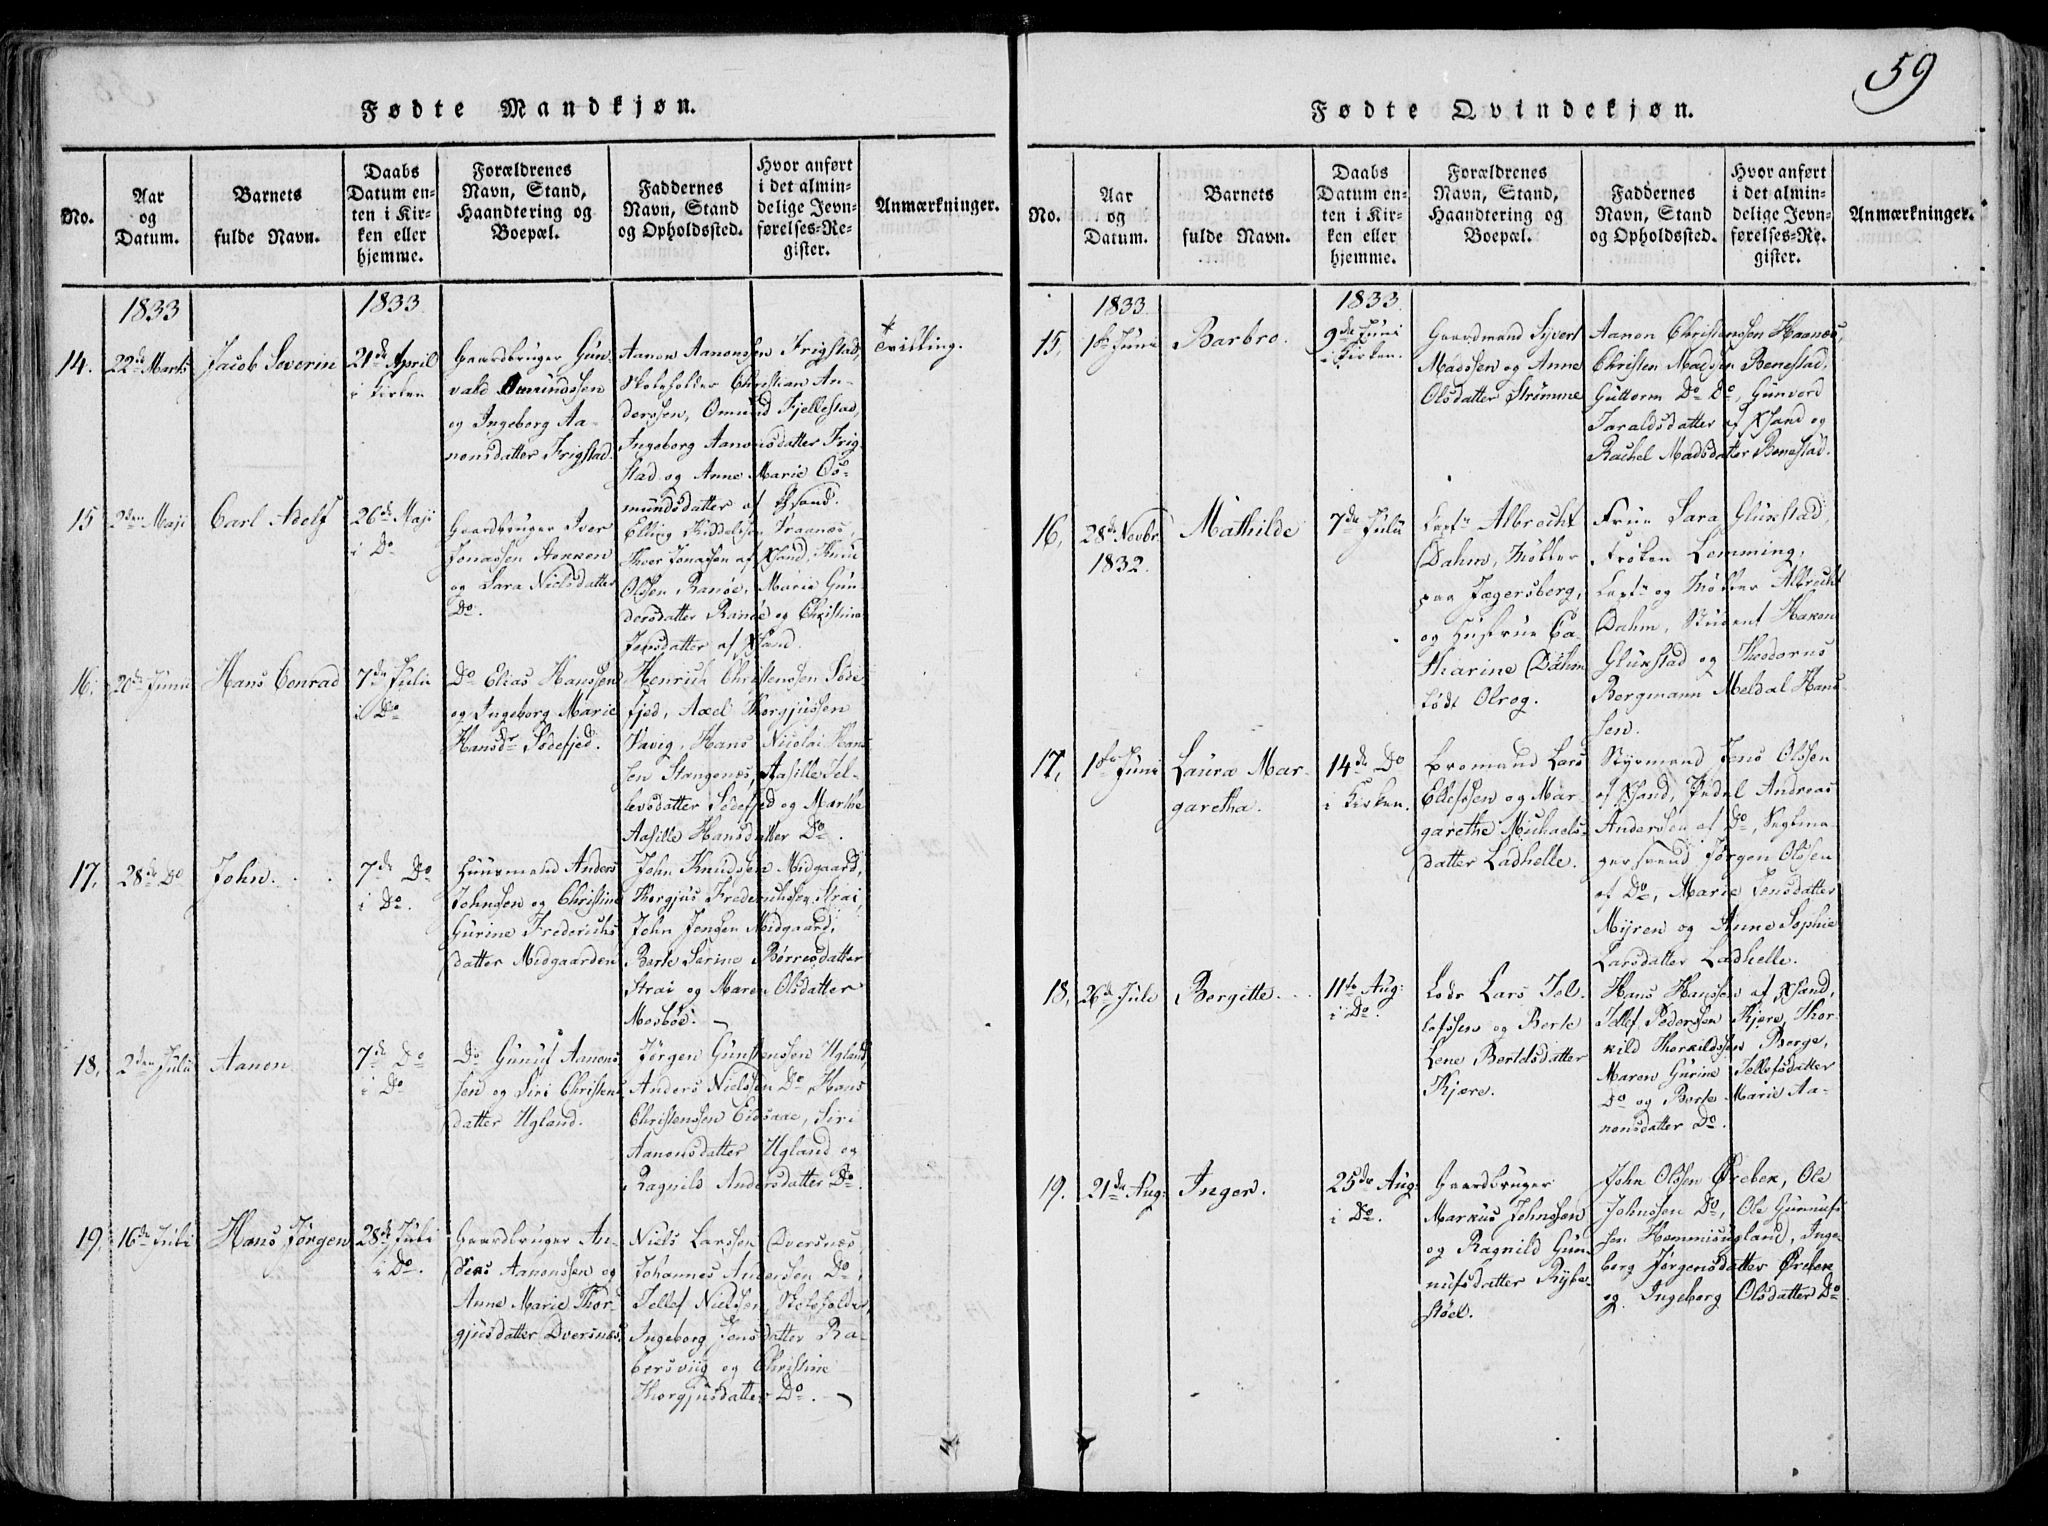 59
Fødte Mandkjøn.
No.
Aar
og
Datum.
Barnets
fulde Navn.
Daabs
Datum en-
ten i Kir-
ken eller
hjemme.
Forældrenes
Navn, Stand,
Haandtering og
Boepæl.
Faddernes
Navn, Stand
og Opholdssted.
Hvor anført
i det almin-
delige Jevn-
førelses-Re-
gister.
Anmærkninger.
1833
1833
14.
22de Marts
Jacob Severin
21de April
i Kirken
Gaardbruger Gun-
vald Omundssen
og Ingeborg Aa-
nonsdatter Frigstad.
Aanon Aanonssen Frigstad,
Skoleholder Christian An-
derssen, Omund Fjellestad,
Ingeborg Aanonsdatter Frig-
stad og Anne Marie Os-
mundsdatter af Xsand.
Tvilling.
15
2den Maji
Carl Adolf
26de Maji
i Do
Gaardbruger Iver
Jonassen Stokken
og Sara Nielsdatter
Do.
Elling Kiddelsen Traanes,
Thoer Jonassen af Xsand, Knud
Olssen Ranøe, Marie Gun-
dersdatter Ranøe og Christine
Jensdatter af Xsand.
16.
20de Junii
Hans Conrad
7de Julii
i Do
Do Elias Hanssen
og Ingeborg Marie
Hansdr Sødefjed.
Henrich Christenssen Søde-
fjed, Axel Thorgjussen
Vavig, Hans Nicolai Han-
sen Stangenes, Aasille Tel-
levsdatter Sødefjed og Marthe
Aasille Hansdatter Do.
17.
28de Do
John.
7de Do
i Do.
Huusmand Anders
Johnsen og Christine
Gurine Frederichs-
datter Midgaarden
John Knudssen Midgaard,
Thorgjus Frederichssen Strai,
John Jensen Midgaard,
Berte Sarine Børresdatter
Strai og Maren Olsdatter
Mosbøe.
18.
2den Julii
Aanon
7de Do
i Do
Do Gunuf Aanons-
sen og Siri Christens-
datter Ugland.
Jørgen Gunstenssen Ugland,
Anders Nielssen Do, Hans
Christenssen Eidsaae, Siri
Aanonsdatter Ugland og
Ragnild Andersdatter Do.
19.
16de Juli
Hans Jørgen
28de Juli
i Do.
Gaardbruger An-
ders Aanonssen og
Anne Marie Thor-
gjusdatter Dversnes.
Niels Larssen Dversnes,
Johannes Anderssen Do,
Tellef Nielssen, Skoleholder,
Ingeborg Jensdatter Ra-
bersviig og Christine
Thorgjusdatter Do.
Fødte Qvindekjøn.
No.
Aar
og
Datum.
Barnets
fulde Navn.
Daabs
Datum en-
ten i Kir-
ken eller
hjemme.
Forældrenes
Navn, Stand,
Haandtering og
Boepæl.
Faddernes
Navn, Stand
og Opholdssted.
Hvor anført
i det almin-
delige Jevn-
førelses-Re-
gister.
Anmærkninger.
1833
1833
15.
1ste Juni
Barbro.
9de Juni
i Kirken.
Gaardmand Syvert
Madssen og Anne
Olsdatter Strømme
Aanon Christenssen Haanes,
Christen Madssen Benestad,
Guttorm Do Do, Gunvord
Taraldsdatter af Xsand og
Rachel Madsdatter Benestad.
16.
28de Novbr
1832.
Mathilde
7de Julii
Capt: Albrecht
Dahm, Møller
paa Jægersberg,
og Hustrue Ca-
tharine Dahm
født Olrog.
Frue Sara Glukstad,
Frøken Lemming,
Capt: og Møller Albrecht
Dahm, Student Hakon
Glukstad og Theodorus
Bergmann Meldal Hans-
sen.
17.
1ste Juni
Laura Mar-
garetha.
14de Do
i Kirken.
Bromand Lars
Ellefssen og Mar-
garethe Michaels-
datter Ladhelle.
Styrmand Jens Olssen
af Xsand, Pedel Andreas
Andersen af Do, Seglma-
gersvend Jørgen Olssen
af Do, Marie Jensdatter
Myren og Anne Sophie
Larsdatter Ladhelle.
18.
26de Juli
Bergitte.
11te Aug:
i Do.
Lods Lars Tel-
lefssen og Berte
Lene Bertelsdatter
Kjære.
Hans Hanssen af Xsand,
Tellef Pederssen Kjære, Thor-
kild Thorkildssen Berge,
Maren Gurine Tellefsdatter
Do og Berte Marie Aa-
nonsdatter Do.
19.
21de Aug:
Inger.
25de Aug:
i Do.
Gaardbruger
Markus Johnssen
og Ragnild Gun-
nufsdatter Rybe-
støel.
John Olssen Ørebek, Ole
Johnssen Do, Ole Gunnufs-
sen Hommisugland, Inge-
berg Jørgensdatter Ørebek
og Ingeborg Olsdatter Do